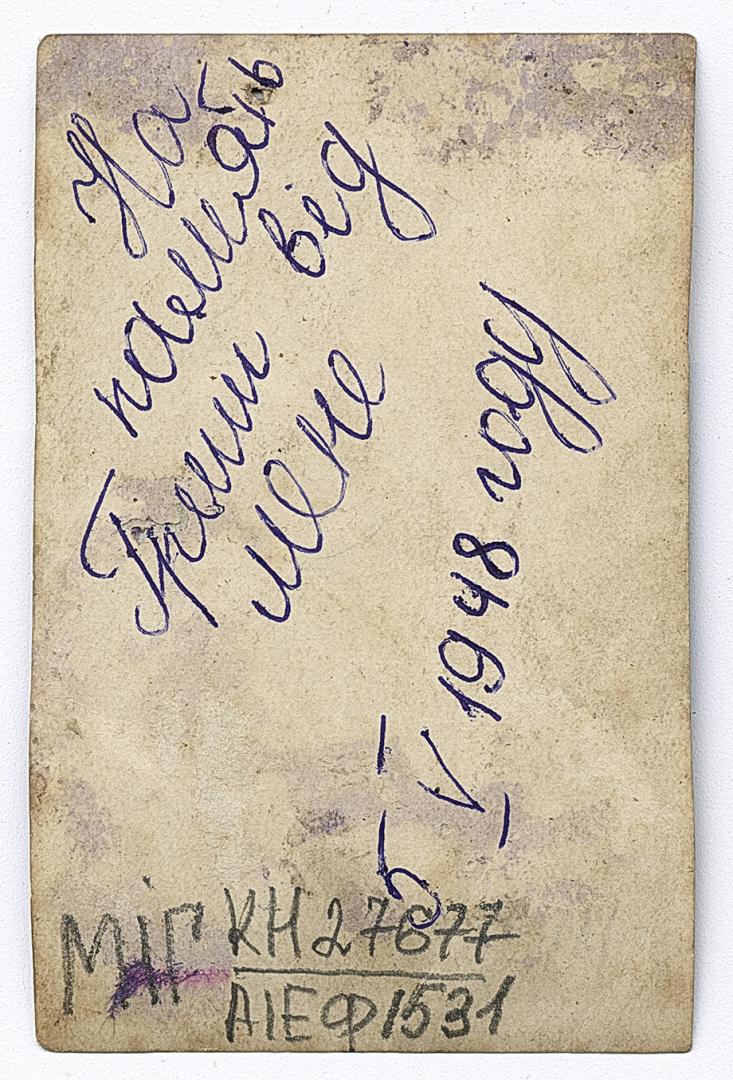 На
память
Гриши від
мене
5 V 1948 году
МІГ КН 27677
АІЕФ1531